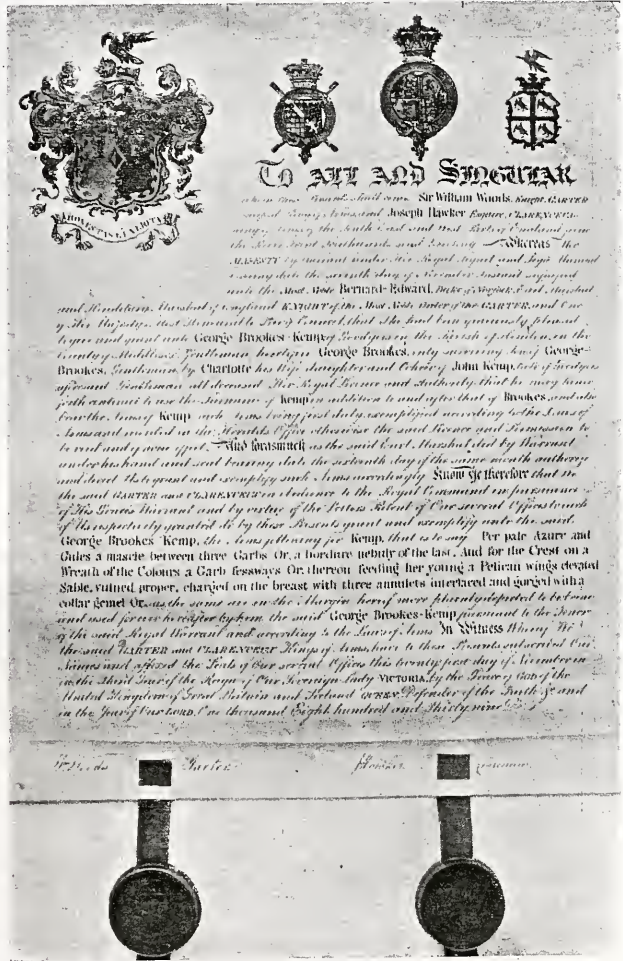 TO ALL AND SINGULAR
to whom these Presents shall come Sir William Woods, Knight, GARTER
Principal King of Arms and Joseph Hawker Esquire, CLARENCEUX
King of Arms of the South East and West Parts of England from
the River Trent Southwards send Greeting Whereas Her
MAJESTY by warrant under Her Royal Signet and Sign Manual
bearing date the seventh day of November Instant signified
unto the Most Noble Bernard-Edward, Duke of Norfolk, Earl Marshal
and Hereditary Marshal of England KNIGHT of the Most Noble Order of the GARTER, and One
of Her Majesty's Most Honourable Privy Council, that She had been graciously pleased
to give and grant unto George Brookes-Kemp of in the Parish of in the
County of Middlesex Gentleman heretofore George Brookes, only surviving Son of George-
Brookes, Gentleman, by Charlotte his Wife daughter and Coheir of John Kemp, late of
aforesaid Gentleman all deceased Her Royal Licence and Authority that he may hence
forth continue to use the Surname of Kemp in addition to and after that of Brookes and also
bear the Arms of Kemp such Arms being first duly exemplified according to the Laws of
Arms and recorded in the Heralds Office otherwise the said Licence and Permission to
be void and of none effect. And forasmuch as the said Earl Marshal did by Warrant
under his hand and seal bearing date the sixteenth day of the same month authorize
and direct Us to grant and exemplify such Arms accordingly Know Ye therefore that We
the said GARTER and CLARENCEUX in obedience to the Royal Command in pursuance
of His Grace's Warrant and by virtue of the Letters Patent of Our several Offices to each
of Us respectively granted do by these Presents grant and exemplify unto the said
George Brookes Kemp, the Arms following for Kemp, that is to say Per pale Azure and
Gules a mascle between three Garbs Or, a bordure nebuly of the last, And for the Crest on a
Wreath of the Colours a Garb fessways Or, thereon feeding her young a Pelican wings elevated
Sable, vulned proper, charged on the breast with three annulets interlaced and gorged with a
collar gemel Or, as the same are in the Margin hereof more plainly depicted to be borne
and used for ever hereafter by him the said George Brookes-Kemp pursuant to the Tenor
of the said Royal Warrant and according to the Laws of Arms In Witness Whereof We
the said GARTER and CLARENCEUX Kings of Arms have to these Presents subscribed Our
Names and affixed the Seals of Our several Offices this twenty first day of November
in the Third Year of the Reign of Our Sovereign Lady VICTORIA by the Grace of God of the
United Kingdom of Great Britain and Ireland QUEEN Defender of the Faith &c and
in the Year of Our LORD, One thousand Eight hundred and Thirty nine
Wm Woods Garter J Hawker